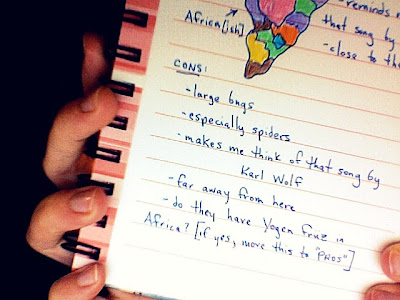 -reminds m
Africa[ish]
that song by
-close to the
CONS:
-large bugs
-especially spiders
-makes me think of that song by
Karl Wolf
-far away from here
-do they have Yogen Fruz in
Africa? [if yes, move this to "PROS"]